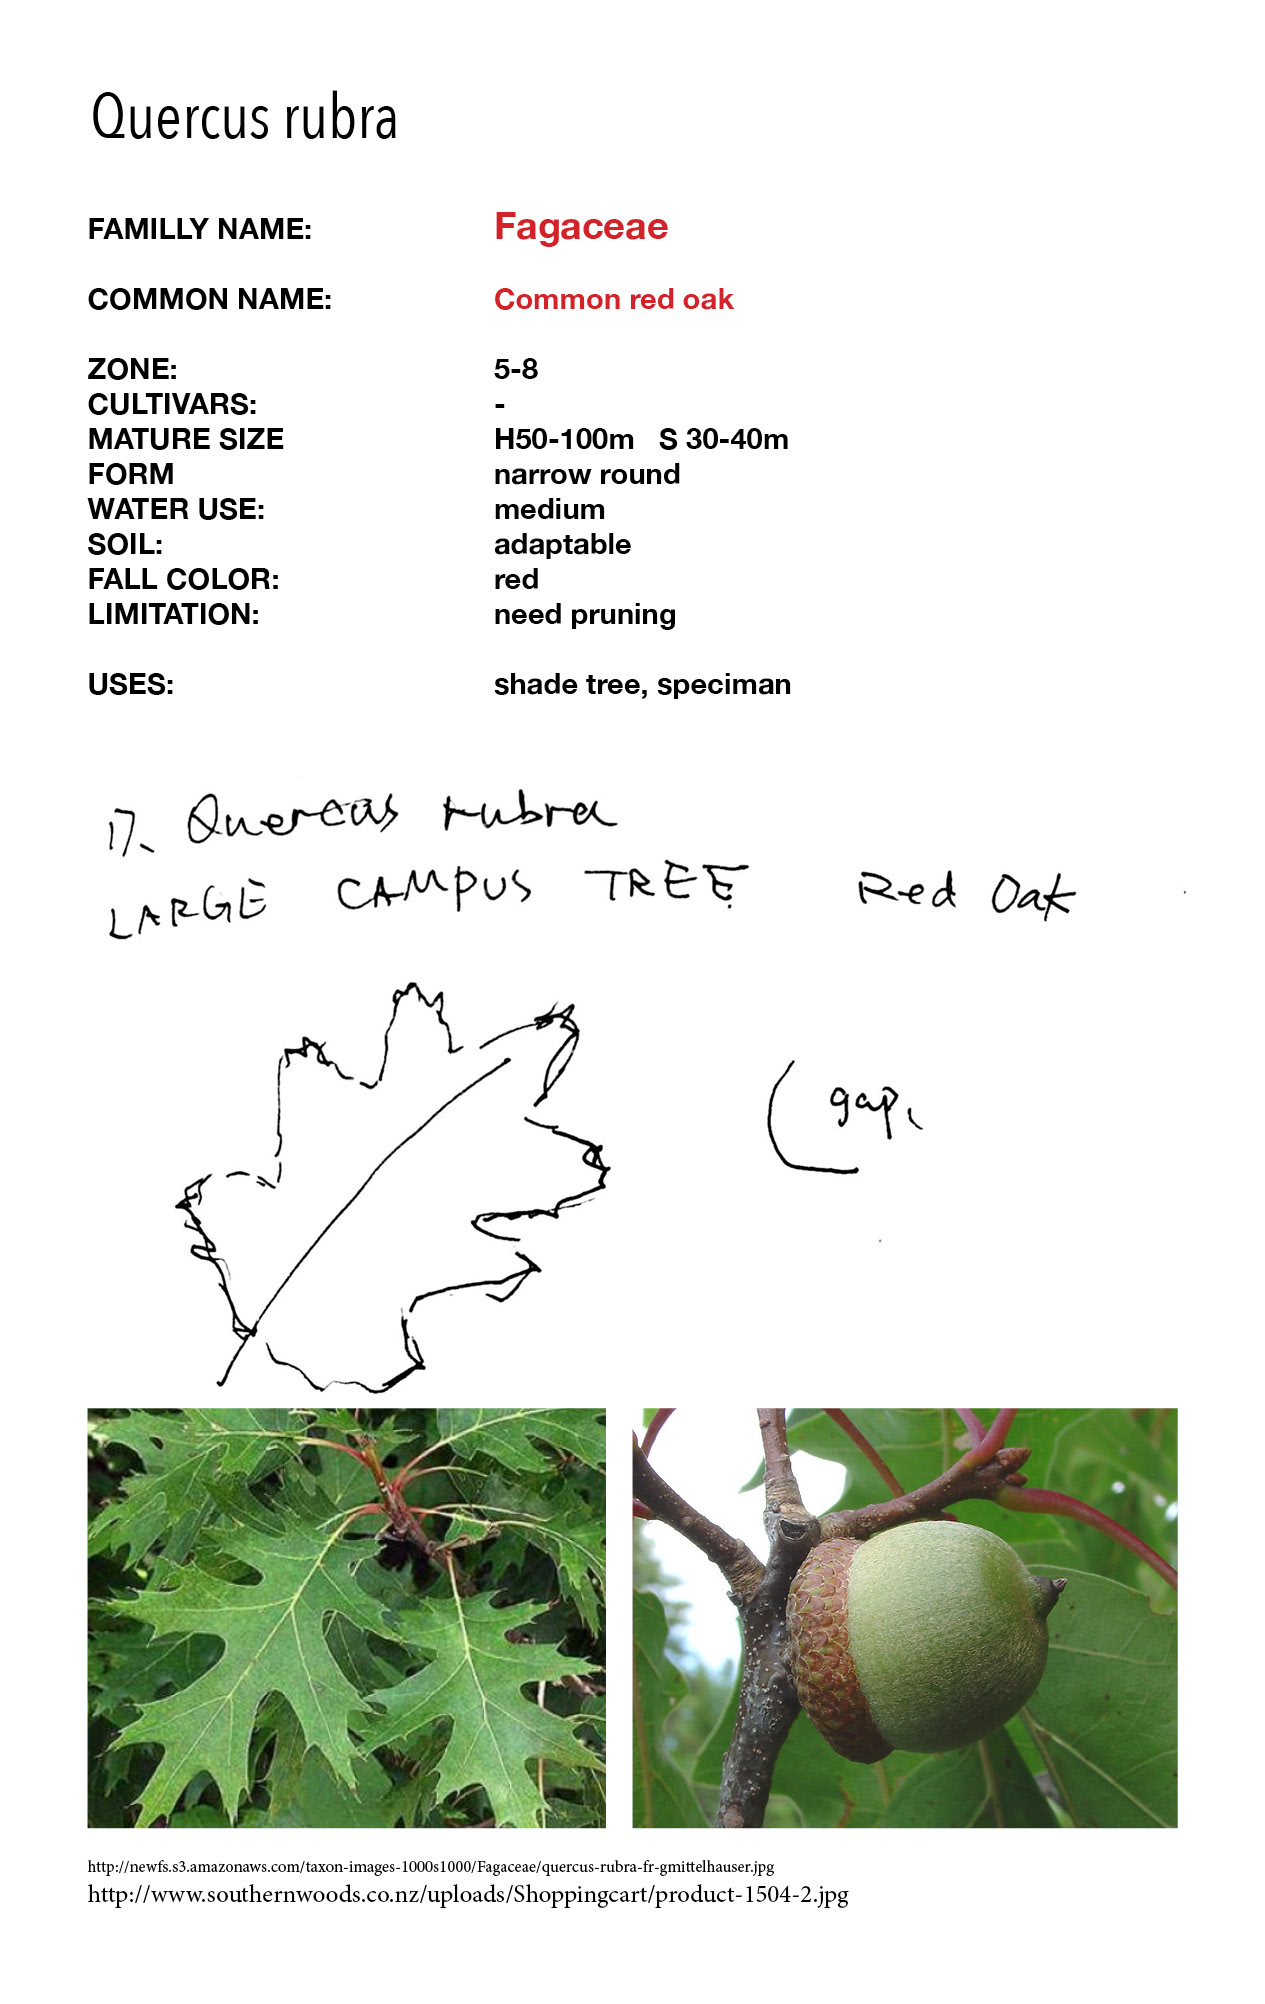 Quercus rubra
FAMILLY NAME: Fagaceae
COMMON NAME: Common red oak
ZONE: 5-8
CULTIVARS: -
MATURE SIZE H50-100m S 30-40m
FORM narrow round
WATER USE: medium
SOIL: adaptable
FALL COLOR: red
LIMITATION: need pruning
USES: shade tree, speciman
17. Quercus rubra
LARGE CAMPUS TREE Red Oak
gap,
http://newfs.s3.amazonaws.com/taxon-images-1000s1000/Fagaceae/quercus-rubra-fr-gmittelhauser.jpg
http://www.southernwoods.co.nz/uploads/Shoppingcart/product-1504-2.jpg